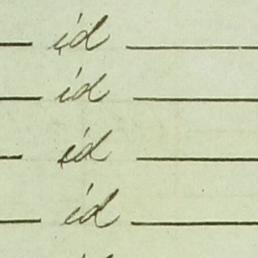 id
id
id
id